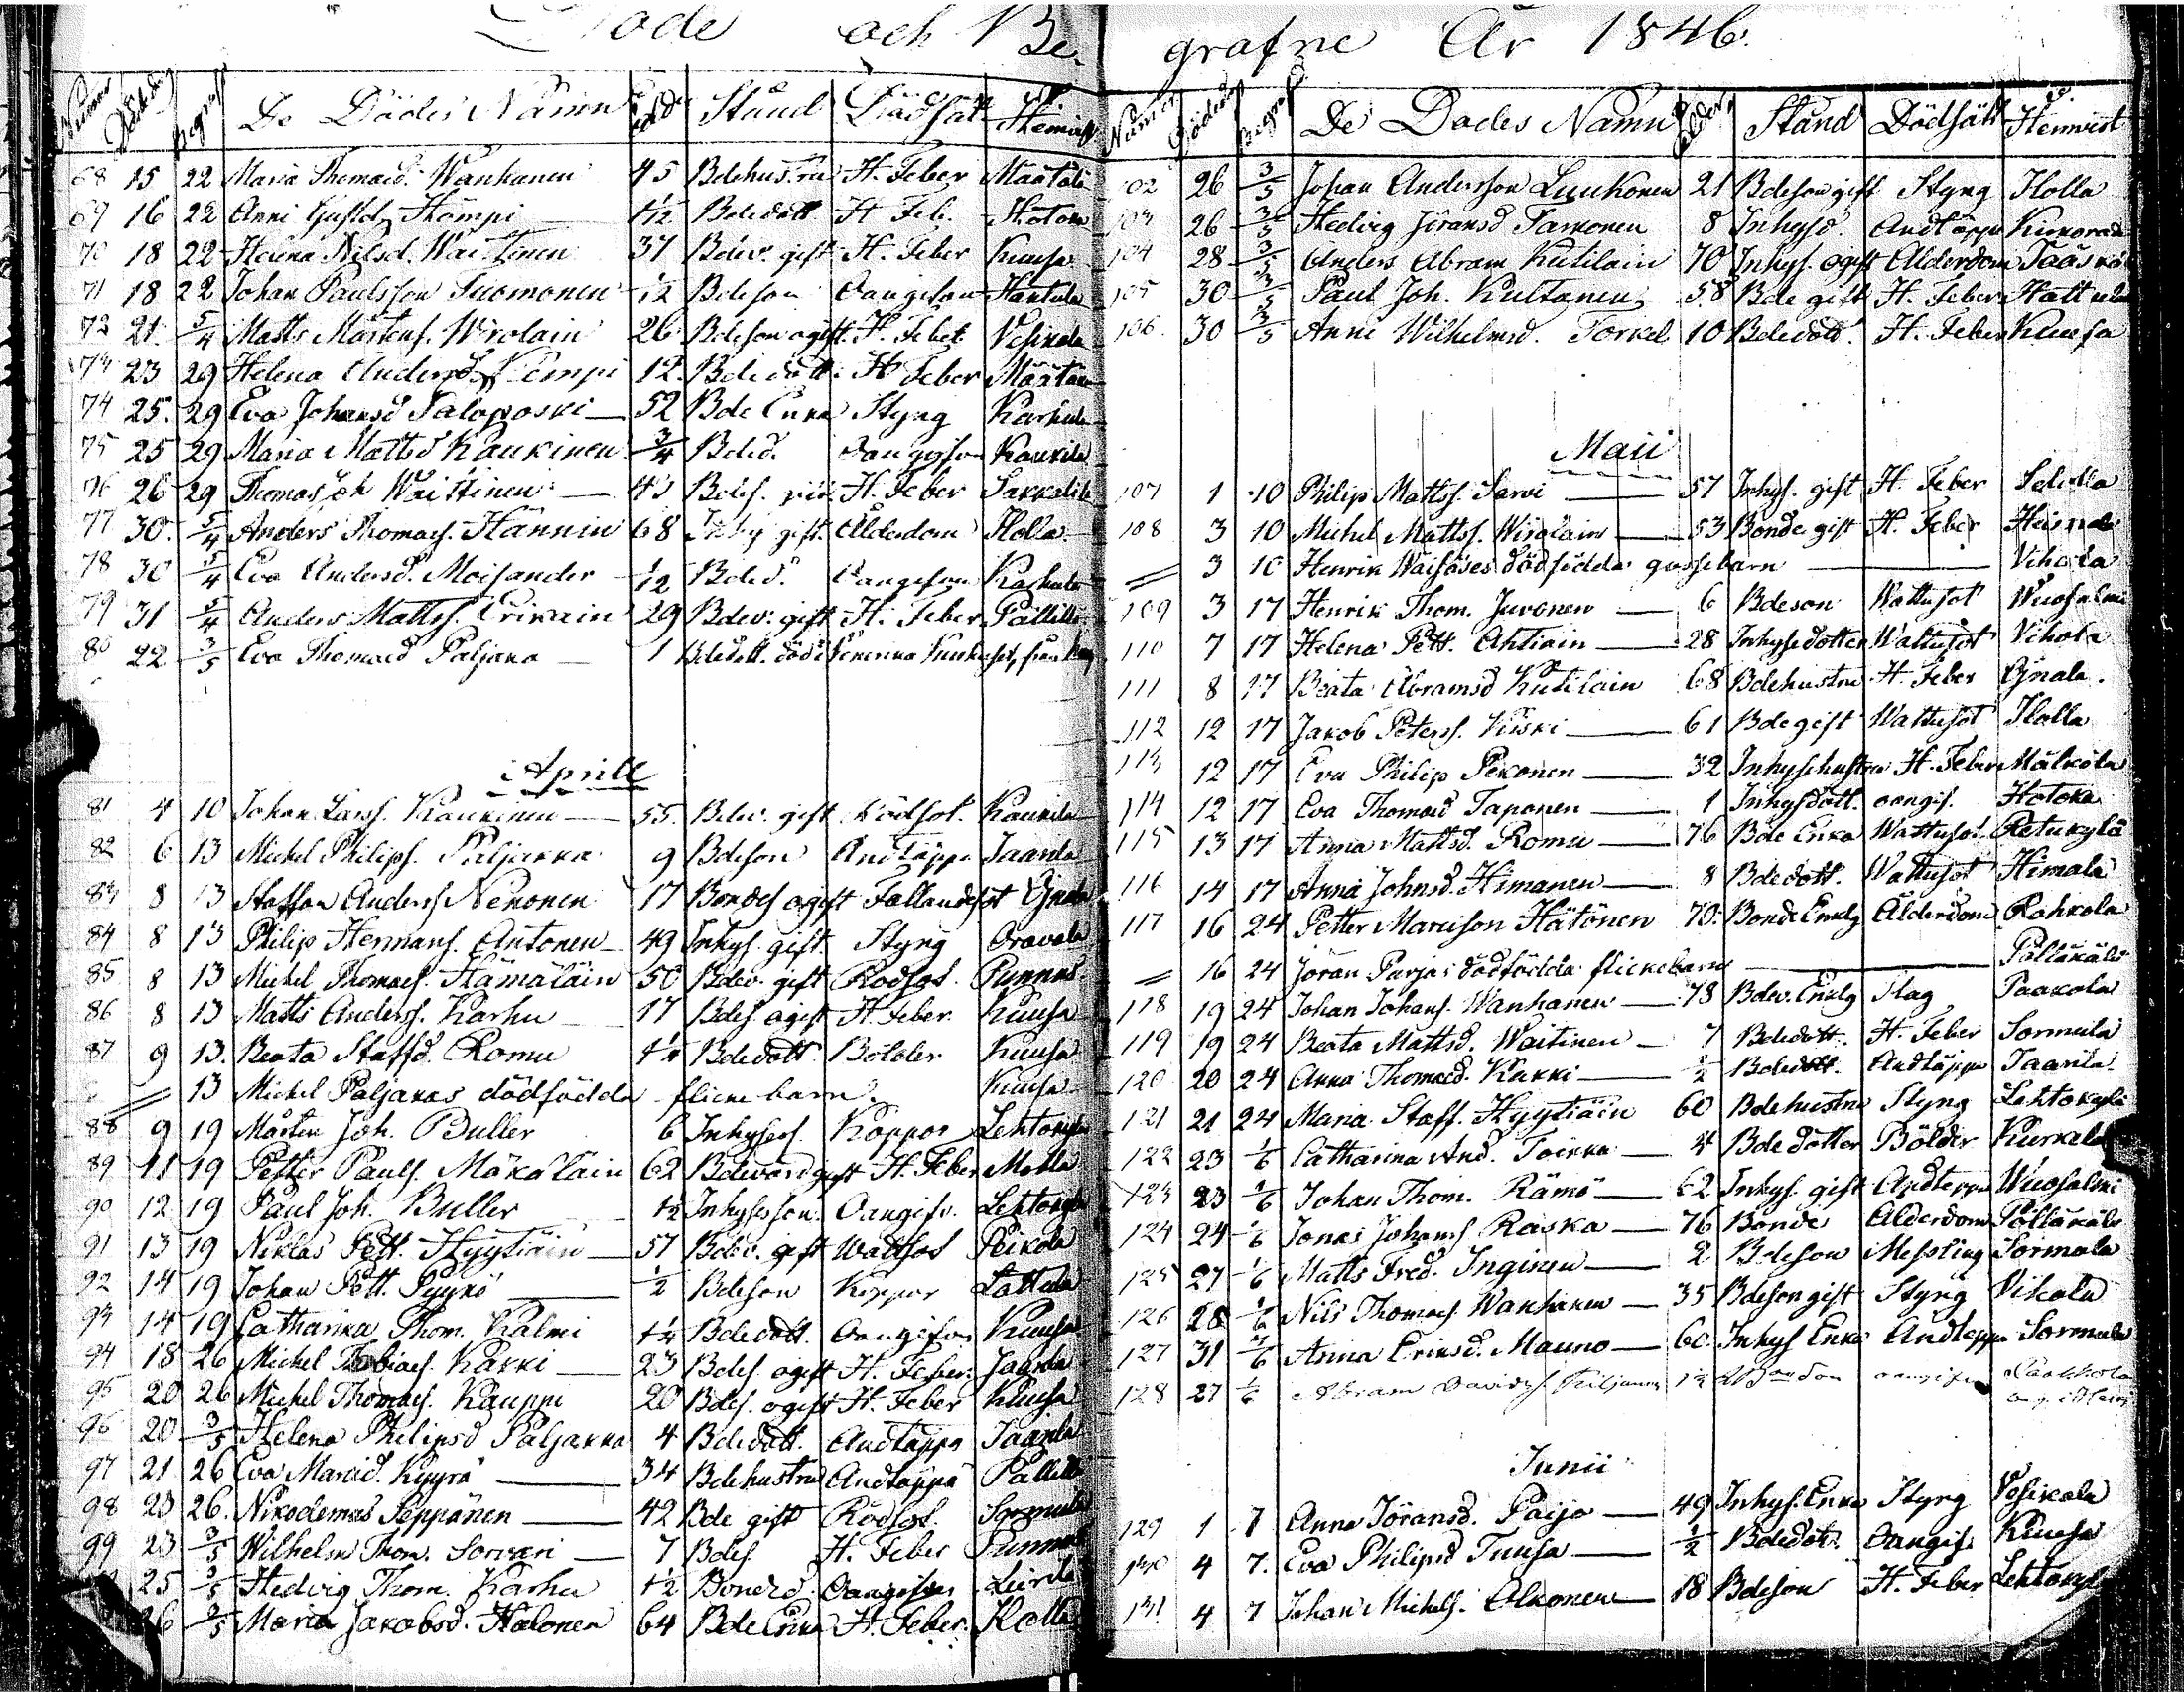 Döde och Be-
Numer Dödsdag Begrafn De Dödes Namn Ålder Stånd Dödsätt Hemvist
68 15 22 Maria Thomasd. Wanhanen 45 Bdehustru H. Feber Määtälä
69 16 22 Anni Gustafsd. Kämpi 1 1/2 Bdedott. H Feb. Hotoka
70 18 22 Helena Nilsd. Waitinen 37 Bdev. gift H. Feber Kuusa
71 18 22 Johan Paulsson Tuomonen 1/2 Bdeson Oangifven Hantula
72 21. 5/4 Matts Mårtens. Wirolain 26 Bdeson ogift H. Feber Vesikala
73 23 29 Helena Andersd. Kämpi 12. Bdedott. H Feber Määtälä
74 25. 29 Eva Johansd Taloposki 52 Bde Enka Styng Karhula
75 25 29 Maria Mattsd Kaukinen 3/4 Bded. Oangifven Kaukila
76 26 29 Thomas Joh Waittinen 43 Bdes. gift H. Feber Sakkalila
77 30. 5/4 Anders Thomass. Hännin 68 Inhy gift. Ålderdom Ilola
78 30 5/4 Eva Andersd. Moisander 1/12 Bded. Oangifven Karhula
79 31 5/4 Anders Mattss. Eerikäin 29 Bdev. gift H. Feber Pällilä
80 22 3/5 Eva Thomasd Paljaka 1 Bdedott. död i
Aprill
81 4 10 Johan Larss. Kaukinen 55. Bdev. gift Rödsot. Kaukila
82 6 13 Michel Philips. Paljakka 9 Bdeson Andtäppa Jaanila
83 8 13 Staffan Anderss Nenonen 17 Bondes ogift Fallandesot Ojnala
84 8 13 Philip Hermans. Antonen 49 Inhys. gift Styng Oravala
85 8 13 Michel Thomass. Hämäläin 50 Bdev. gift Rödsot. Punnus
86 8 13 Matts Anderss. Karhu 17 Bdes ogift H. Feber. Kuusa
87 9 13. Beata Staffsd. Romu 1 1/4 Bdedott Bölder Kuusa
13 Michel Paljakas dödfödda flickebarn. Kuusa
88 9 19 Mårten Joh. Buller 6 Inhyses. Koppor Lehtokylä
89 11 19 Petter Pauls. Mäkäläin 62 Bdevärd gift H. Feber Metla
90 12 19 Paul Joh. Buller 1 1/2 Inhysesson. Oangifv. Lehtokylä
91 13 19 Niklas Pett. Hyytiäin 57 Bdev. gift Wattsot Peikola
92 14 19 Johan Pett. Pyykö 1/2 Bdeson Koppor Lattula
93 14 19 Catharina Thom. Kalmi 1 1/4 Bdedott. Oangifven Kuusa
94 18 26 Michel Tobiass. Kakki 23 Bdes. ogift H. Feber. Jaanila
95 20 26 Michel Thomass. Kauppi 20 Bdes. ogift H. Feber Kuusa
96 20 3/5 Helena Philipsd Paljakka 4 Bdedott. Andtäppa Jaanila
97 21 26 Eva Marcid. Kyyrä 34 Bdehustru Andtäppa Pällilä
98 23 26. Nikodemus Seppänen 42 Bde gift Rödsot. Sormula
99 23 3/5 Wilhelm Thom. Sorvari 7 Bdes. H. Feber Punnus
25 3/5 Hedvig Thom. Karhu 1 1/2 Bonded. Oangifven
26 3/5 Maria Jakobsd. Halonen 64 Bde Enka H. Feber.
grafne År 1846.
Numer Dödsdag Begraf De Dödes Namn Ålder Stånd Dödsätt Hemvist
102 26 3/5 Johan Andersson Luukonen 21 Bdeson gift Styng Ilolla
103 26 3/5 Hedvig Jöransd Tarkonen 8 Inhysd. Andtäppa
104 28 3/5 Anders Abram Kutilain 70 Inhys. ogift Ålderdom
105 30 3/5 Paul Joh. Kultanen 58 Bde gift H. Feber Hattula
106 30 3/5 Anni Wilhelmsd. Torkel 10 Bdedott. H. Feber Kuusa
Maii
107 1 10 Philip Mattss. Sarvi 57 Inhys. gift H. Feber
108 3 10 Michel Mattss. Wirolain 53 Bonde gift H. Feber
3 10 Henrik Waisäses dödfödda gossebarn Vihola
109 3 17 Henrik Thom. Juvonen 6 Bdeson Wattusot Wuosalmi
110 7 17 Helena Pett. Ahtiain 28 Inhysedotter Wattusot Vihola
111 8 17 Beata Abramsd Kutilain 68 Bdehustru H. Feber Ojnala.
112 12 17 Jakob Peterss. Kiiski 61 Bde gift Wattusot Ilolla
113 12 17 Eva Philip Pekonen 32 Inhysehustru H. Feber Mälkölä
114 12 17 Eva Thomasd Taponen 1 Inhysdott. oangif. Hotoka
115 13 17 Anna Mattsd. Romu 76 Bde Enka Wattusot Retukylä
116 14 17 Anna Johnsd. Himanen 8 Bdedott. Wattusot Himala
117 16 24 Petter Marcison Hätönen 70. Bonde Enklg Ålderdom Rahkola
16 24 Jöran Parjas dödfödda flickebarn Pölläkälä
118 19 24 Johan Johans. Wanhanen 78 Bdev. Enklg Slag Paakola
119 19 24 Beata Mattsd. Waitinen 7 Bdedott. H. Feber Sormula
120 20 24 Anna Thomasd. Kakki 1/2 Bdedott. Andtäppa Jaanila
121 21 24 Maria Staff. Hyytiäin 60 Bdehustru Styng Lehtokylä
122 23 1/6 Catharina And. Toikka 4 Bdedotter Bölder Kurkela
123 23 1/6 Johan Thom. Rämö 62 Inhys. gift Andteppa Wuosalmi
124 24 1/6 Jonas Johanss Raska 76 Bonde Ålderdom Pölläkälä
125 27 1/6 Matts Fred. Inginen 2 Bdeson Messling Sormula
126 28 1/6 Nils Thomass. Wanhanen 35 Bdeson gift Styng Vihola
127 31 7/6 Anna Eriksd. Mauno 60. Inhys Enka Andteppa Sormula
128 27 1/6 Abram Davidss. 1 1/2 oangifven
Junii
129 1 7 Anna Jöransd. Paijo 49 Inhys. Enka Styng Vesikala
130 4 7. Eva Philipsd Tuusa 1/2 Bdedott. Oangif. Kuusa
131 4 7 Johan Michels. Olkonen 18 Bdeson H. Feber Lehtokyl